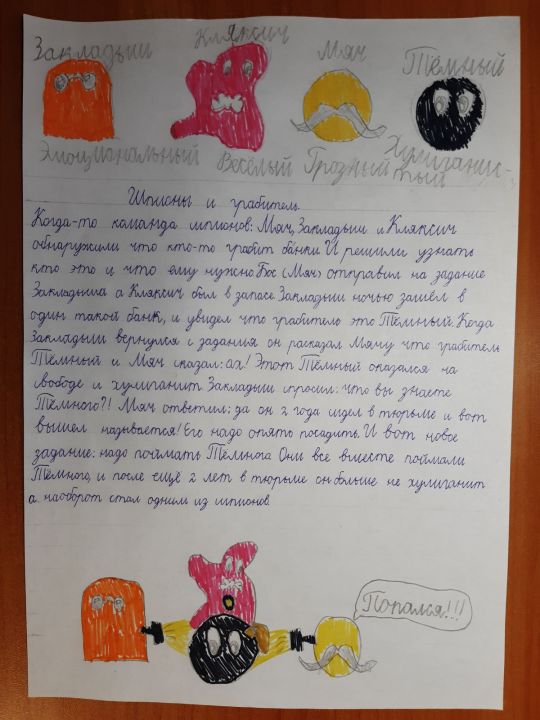 Закладыш Кляксич Мяч Тёмный
Эмоциональный Весёлый Грозный Хулиганис-
тый
Шпионы и грабитель.
Когда-то команда шпионов: Мяч, Закладыш и Кляксич
обнаружили что кто-то грабит банки. И решили узнать
кто это и что ему нужно. Бос (Мяч) отправил на задание
Закладыша а Кляксич был в запасе. Закладыш ночью зашёл в
один такой банк, и увидел что грабитель это Тёмный. Когда
Закладыш вернулся с задания он расказал Мячу что грабитель
Тёмный и Мяч сказал: ах! Этот Тёмный оказался на
свободе и хулиганит. Закладыш спросил: что вы знаете
Тёмного?! Мяч ответил: да он 2 года сидел в тюрьме и вот
вышел называется! Его надо опять посадить. И вот новое
задание: надо поймать Тёмного. Они все вместе поймали
Тёмного, и после ещё 2 лет в тюрьме он больше не хулиганит
а наоборот стал одним из шпионов.
Попался!!!